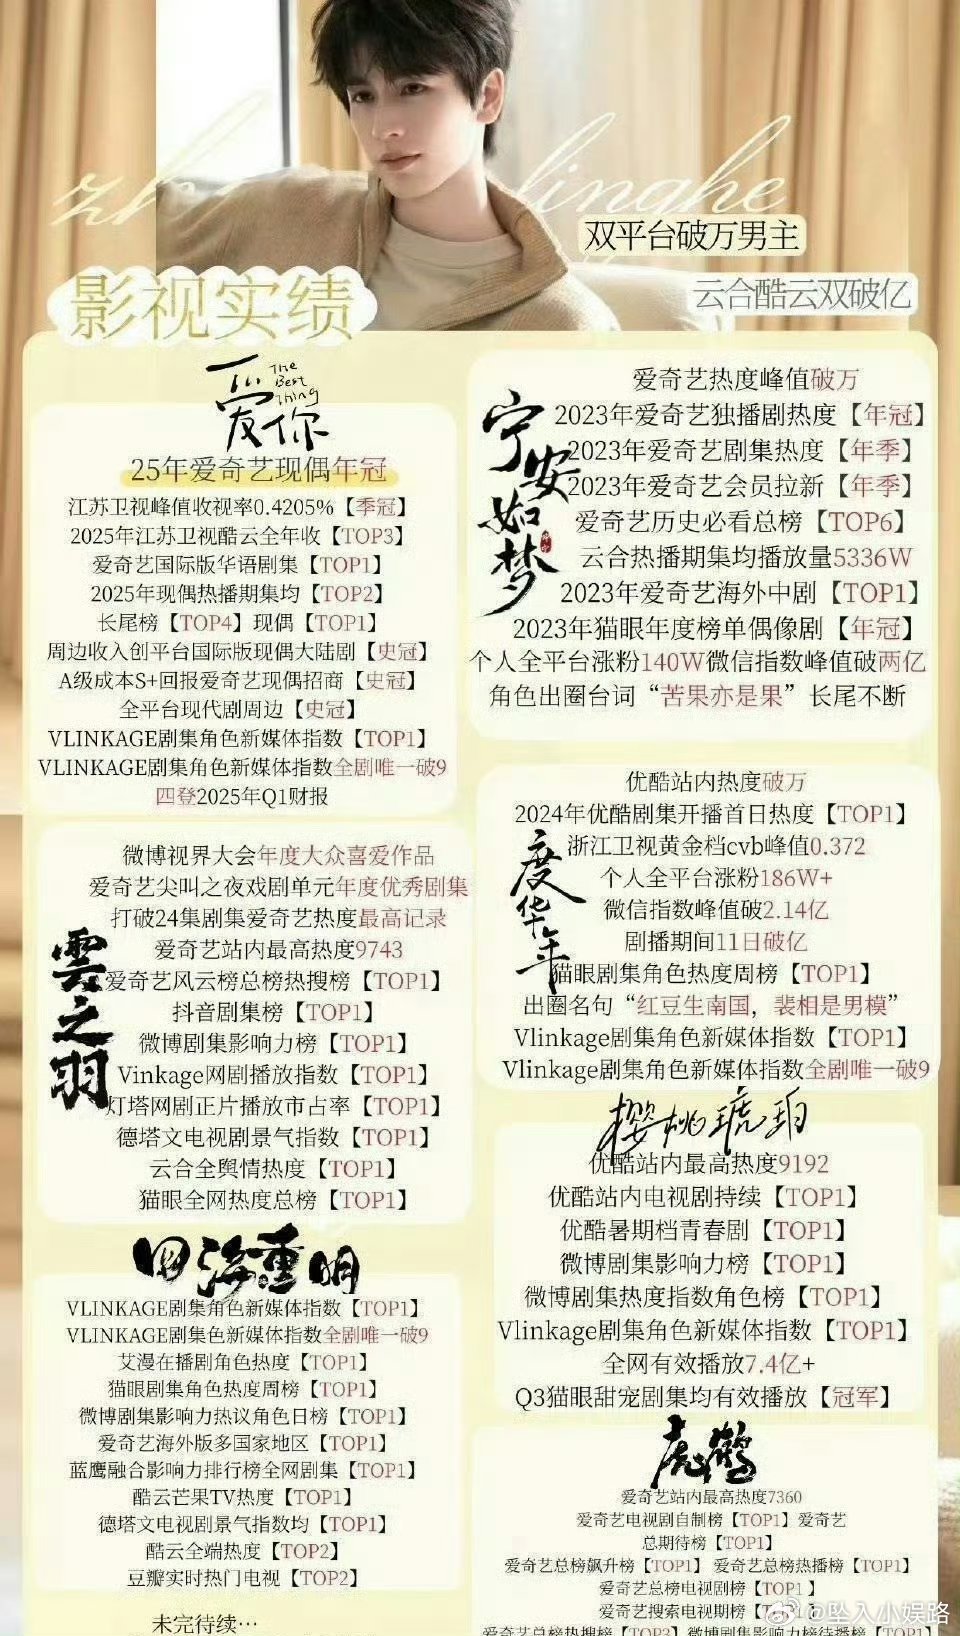 linghe
双平台破万男主
云合酷云双破亿
影视实绩
爱你
The
Best
Thing
25年爱奇艺现偶年冠
江苏卫视峰值收视率0.4205%【季冠】
2025年江苏卫视酷云全年收【TOP3】
爱奇艺国际版华语剧集【TOP1】
2025年现偶热播期集均【TOP2】
长尾榜【TOP4】现偶【TOP1】
周边收入创平台国际版现偶大陆剧【史冠】
A级成本S+回报爱奇艺现偶招商【史冠】
全平台现代剧周边【史冠】
VLINKAGE剧集角色新媒体指数【TOP1】
VLINKAGE剧集角色新媒体指数全剧唯一破9
四登2025年Q1财报
宁安如梦
爱奇艺热度峰值破万
2023年爱奇艺独播剧热度【年冠】
2023年爱奇艺剧集热度【年季】
2023年爱奇艺会员拉新【年季】
爱奇艺历史必看总榜【TOP6】
云合热播期集均播放量5336W
2023年爱奇艺海外中剧【TOP1】
2023年猫眼年度榜单偶像剧【年冠】
个人全平台涨粉140W微信指数峰值破两亿
角色出圈台词“苦果亦是果”长尾不断
云之羽
微博视界大会年度大众喜爱作品
爱奇艺尖叫之夜戏剧单元年度优秀剧集
打破24集剧集爱奇艺热度最高记录
爱奇艺站内最高热度9743
爱奇艺风云榜总榜热搜榜【TOP1】
抖音剧集榜【TOP1】
微博剧集影响力榜【TOP1】
Vinkage网剧播放指数【TOP1】
灯塔网剧正片播放市占率【TOP1】
德塔文电视剧景气指数【TOP1】
云合全舆情热度【TOP1】
猫眼全网热度总榜【TOP1】
度华年
优酷站内热度破万
2024年优酷剧集开播首日热度【TOP1】
浙江卫视黄金档cvb峰值0.372
个人全平台涨粉186W+
微信指数峰值破2.14亿
剧播期间11日破亿
猫眼剧集角色热度周榜【TOP1】
出圈名句“红豆生南国，裴相是男模”
Vlinkage剧集角色新媒体指数【TOP1】
Vlinkage剧集角色新媒体指数全剧唯一破9
樱桃琥珀
优酷站内最高热度9192
优酷站内电视剧持续【TOP1】
优酷暑期档青春剧【TOP1】
微博剧集影响力榜【TOP1】
微博剧集热度指数角色榜【TOP1】
Vlinkage剧集角色新媒体指数【TOP1】
全网有效播放7.4亿+
Q3猫眼甜宠剧集均有效播放【冠军】
四海重明
VLINKAGE剧集角色新媒体指数【TOP1】
VLINKAGE剧集色新媒体指数全剧唯一破9
艾漫在播剧角色热度【TOP1】
猫眼剧集角色热度周榜【TOP1】
微博剧集影响力热议角色日榜【TOP1】
爱奇艺海外版多国家地区【TOP1】
蓝鹰融合影响力排行榜全网剧集【TOP1】
酷云芒果TV热度【TOP1】
德塔文电视剧景气指数均【TOP1】
酷云全端热度【TOP2】
豆瓣实时热门电视【TOP2】
未完待续…
虎鹤
爱奇艺站内最高热度7360
爱奇艺电视剧自制榜【TOP1】爱奇艺
总期待榜【TOP1】
爱奇艺总榜飙升榜【TOP1】 爱奇艺总榜热播榜【TOP1】
爱奇艺总榜电视剧榜【TOP1】
爱奇艺搜索电视期榜【TOP1】
爱奇艺总榜热搜榜【TOP3】微博剧集影响力榜待播榜【TOP1】
@坠入小娱路